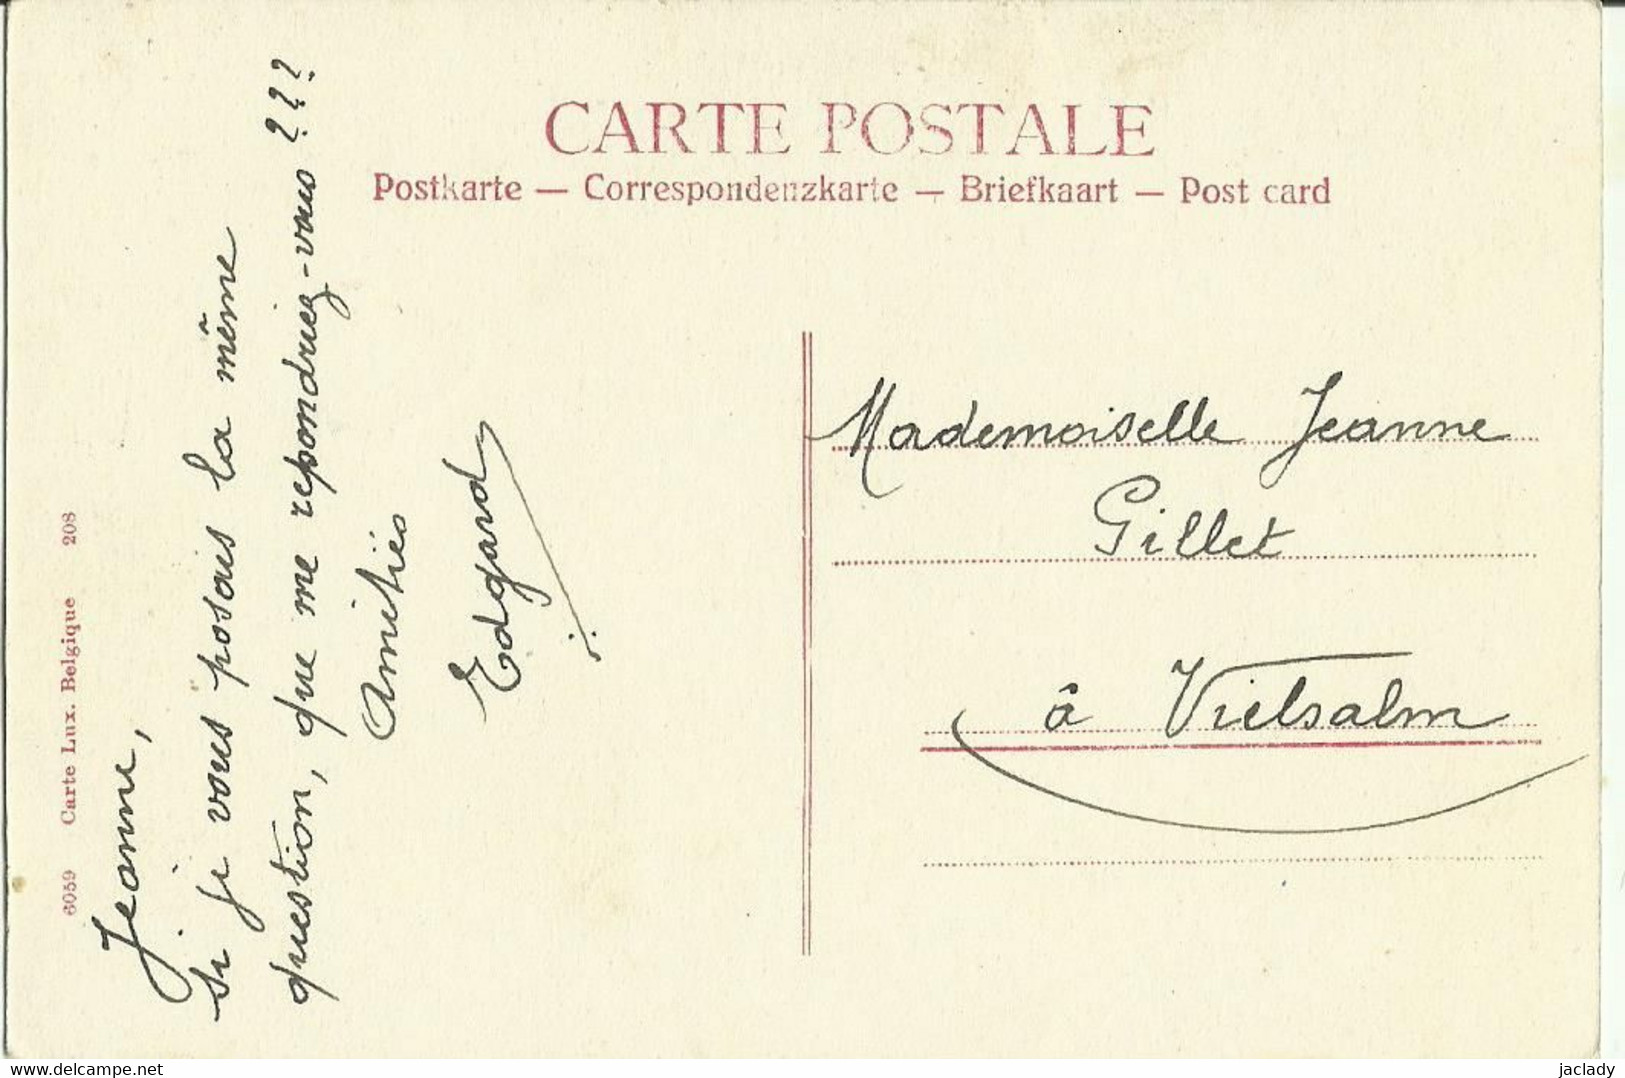 CARTE POSTALE
Postkarte — Correspondenzkarte — Briefkaart — Post card
6059 Carte Lux. Belgique 208
Jeanne,
si je vous posais la même
question, que me repondriez-vous ???
Amitiés
Edgard
Mademoiselle Jeanne
Gillet
à Vielsalm
delcampe.net
jaclady